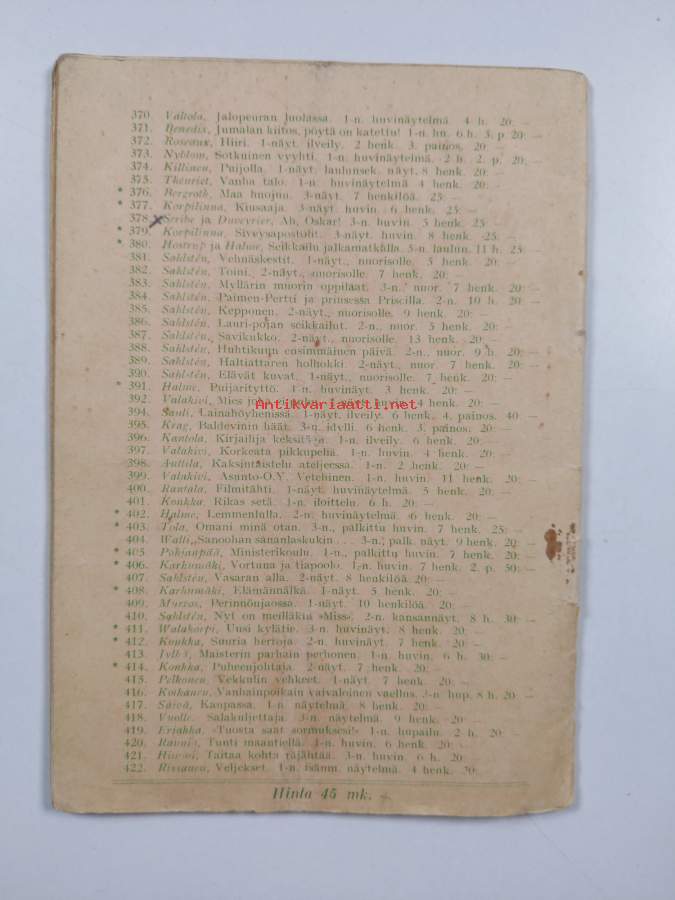 370. Valtola, Jalopeuran luolassa. 1-n. huvinäytelmä 4 h. 20: —
371. Benedix, Jumalan kiitos, pöytä on katettu! 1-n. hn. 6 h. 3. p. 20: —
372. Roseaux, Hiiri. 1-näyt. ilveily. 2 henk. 3. painos. 20: —
373. Nyblom, Sotkuinen vyyhti. 1-n. huvinäytelmä. 2 h. 2. p. 20: —
374. Killinen, Puijolla. 1-näyt. laulunsek. näyt. 8 henk. 20: —
375. Theuriet, Vanha talo. 1-n. huvinäytelmä 4 henk. 20: —
* 376. Bergroth, Maa huojun. 3-näyt. 7 henkilöä. 25: —
* 377. Korpilinna, Kiusaaja. 3-näyt. huvin. 6 henk. 25: —
378. Scribe ja Duveyrier, Ah, Oskar! 3-n. huvin. 5 henk. 25: —
* 379. Korpilinna, Siveysapostolit. 3-näyt. huvin. 8 henk. 25: —
* 380. Hostrup ja Halme, Seikkailu jalkamatkalla. 5-n. laulun. 11 h. 25: —
381. Sahlstén, Vehnäskestit. 1-näyt., nuorisolle. 5 henk. 20: —
382. Sahlstén, Toini. 2-näyt., nuorisolle. 7 henk. 20: —
383. Sahlstén, Myllärin muorin oppilaat. 3-n., nuor. 7 henk. 20: —
384. Sahlstén, Paimen-Pertti ja prinsessa Priscilla. 2-n. 10 h. 20 —
385. Sahlstén, Kepponen. 2-näyt., nuorisolle. 9 henk. 20: —
386. Sahlstén, Lauri-pojan seikkailut. 2-n., nuor. 5 henk. 20: —
387. Sahlstén, Savikukko. 2-näyt., nuorisolle. 13 henk. 20: —
388. Sahlstén, Huhtikuun ensimmäinen päivä. 2-n., nuor. 9 h. 20: —
389. Sahlstén, Haltiattaren holhokki. 2-näyt., nuor. 7 henk. 20: —
390. Sahlstén, Elävät kuvat. 1-näyt., nuorisolle. 7 henk. 20: —
* 391. Halme, Puijarityttö. 1-n. huvinäyt. 3 henk. 20: —
392. Valakivi, Mies joka 1-näyt. huvin. 4 henk. 20: —
Antikvariaatti.net
394. Sauli, Lainahöyhenissä. 1-näyt. ilveily. 6 henk. 4. painos. 40: —
395. Krag, Baldevinin häät. 3-n. idylli. 6 henk. 3. painos. 20: —
396. Kantola, Kirjailija keksitään. 1-n. ilveily. 6 henk. 20: —
397. Valakivi, Korkeata pikkupeliä. 1-n. huvin. 4 henk. 20: —
398. Anttila, Kaksintaistelu ateljeessa. 1-n. 2 henk. 20: —
399. Valakivi, Asunto-O.Y. Vetehinen. 1-n. huvin. 11 henk. 20: —
400. Rantala, Filmitähti. 1-näyt. huvinäytelmä. 5 henk. 20: —
401. Konkka, Rikas setä. 1-n. iloittelu. 6 h. 20: —
* 402. Halme, Lemmenlulla. 2-n. huvinäytelmä. 6 henk. 20: —
* 403. Tola, Omani minä otan. 3-n., palkittu huvin. 7 henk. 25: —
404. Walli, Sanoohan sananlaskukin... 3-n., palk. näyt. 9 henk. 20: —
* 405. Pohjanpää, Ministerikoulu. 1-n., palkittu huvin. 7 henk. 20: —
* 406. Karhumäki, Vortuna ja tiapoolo. 1-n. huvin. 7 henk. 2. p. 50: —
407. Sahlstén, Vasaran alla. 2-näyt. 8 henkilöä. 20: —
* 408. Karhumäki, Elämännälkä. 1-näyt. 5 henk. 20: —
409. Murros, Perinnönjaossa. 1-näyt. 10 henkilöä. 20: —
410. Sahlstén, Nyt on meilläkin »Miss». 2-n. kansannäyt. 8 h. 30: —
* 411. Walakorpi, Uusi kylätie. 3-n. huvinäyt. 8 henk. 20: —
* 412. Konkka, Suuria hertoja. 2-n. huvinäyt. 7 henk. 20: —
* 413. Maisterin parhain perhonen. 1-n. huvin. 6 h. 30: —
* 414. Konkka, Puheenjohtaja. 2-näyt. 7 henk. 20: —
415. Pelkonen, Vekkulin vehkeet. 1-näyt. 7 henk. 20: —
416. Koikanen, Vanhainpoikain vaivaloinen vaellus. 3-n. hup. 8 h. 20: —
417. Säivä, Kaupassa. 1-n. näytelmä. 8 henk. 20: —
418. Vuolle, Salakuljettaja. 3-n. näytelmä. 9 henk. 20: —
419. Erjahka, »Tuosta saat sormuksesi!» 1-n. hupailu. 2 h. 20: —
420. Raunio, Tunti maantiellä. 1-n. huvin. 6 henk. 20: —
421. Taitaa kohta räjähtää. 3-n. huvin. 6 h. 20: —
422. Rissanen, Veljekset. 1-n. isänm. näytelmä. 4 henk. 20: —
Hinta 45 mk. —